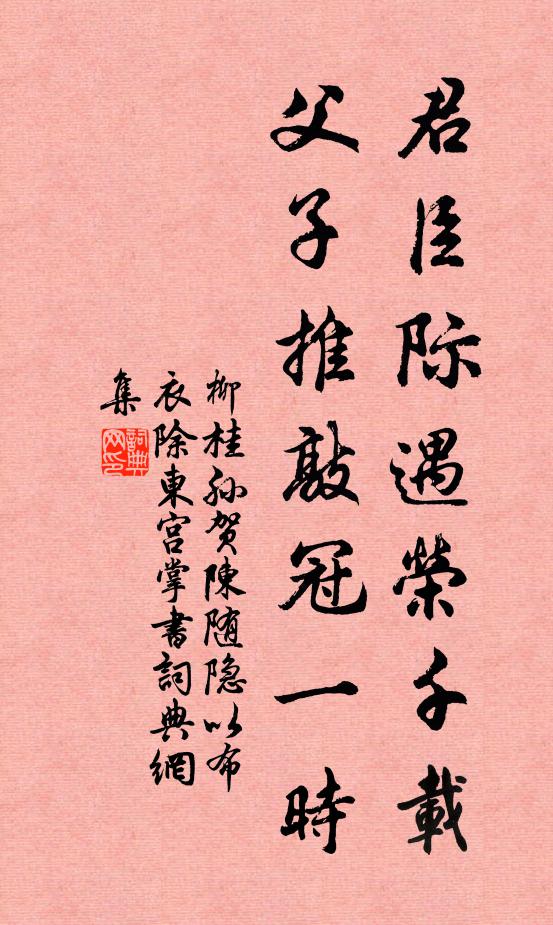 君臣际遇榮千載
父子推敲冠一時
柳桂孙贺陳随隐以布
衣除東宫掌書詞典網
集
詞典
网印